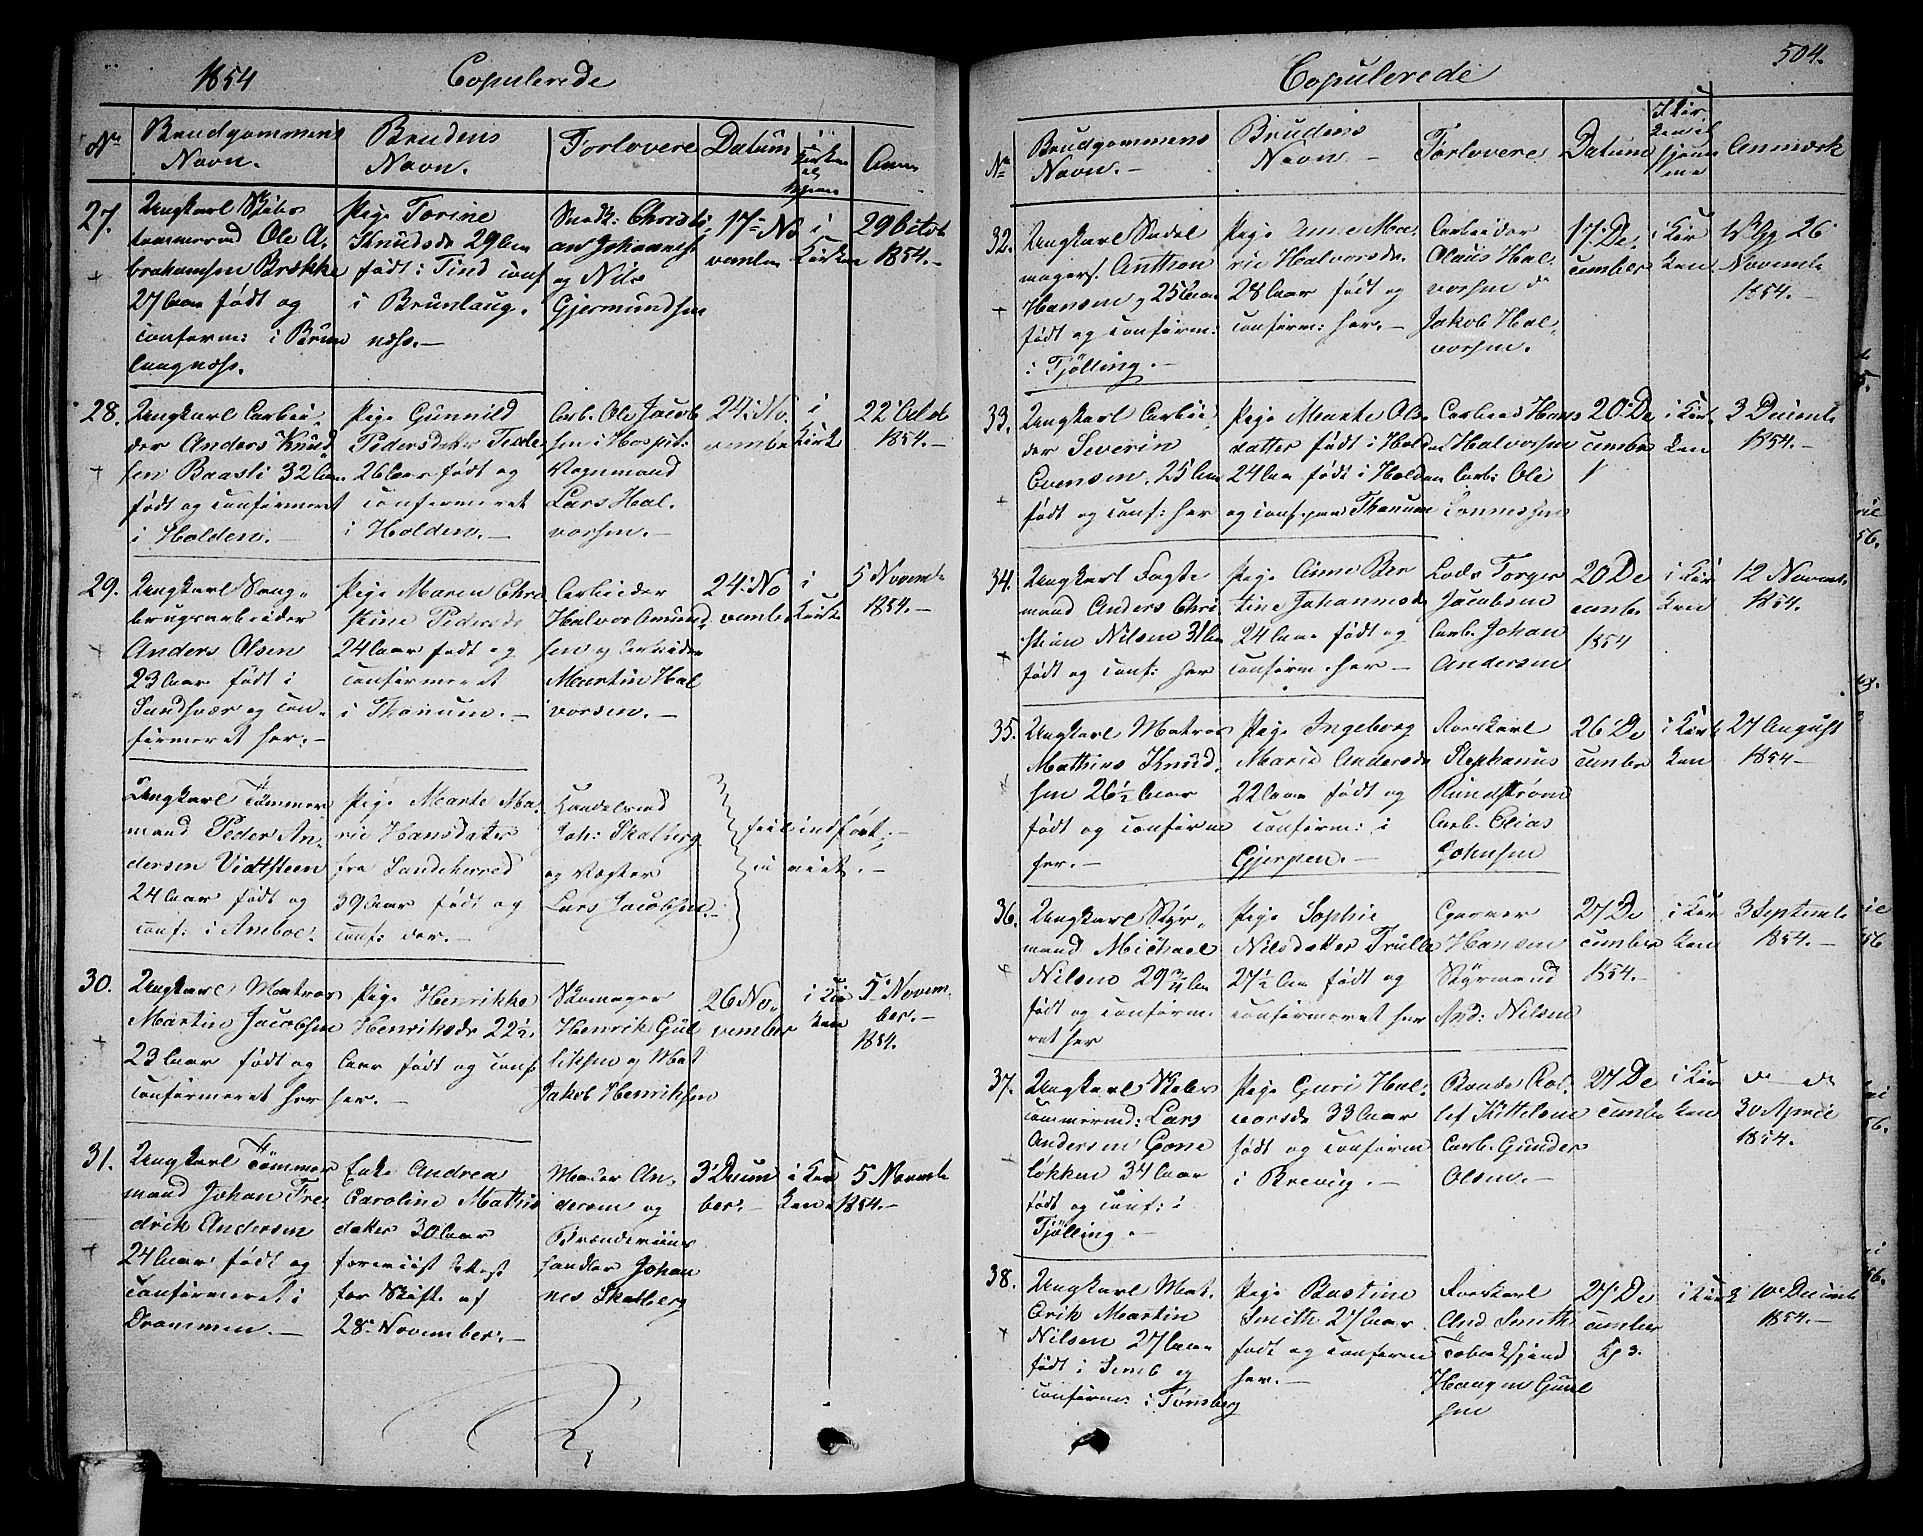 1854
Copulerede
No
Brudgommens
Navn.
Brudens
Navn.
Forlovere
Datum
i
Kirken
el
Anm
27.
Ungkarl Skibs
tømmermd Ole A.
brahamsen Brekke
27 Aar født og
conferm: i Brun
laugnæss.
Pige Torine
Knudsdr 29 Aar
født i Tind conf
i Brunlaug.
næss.-
Snedk: Christi
an Johannes
og Nils
Gjermundsen
17de No
vember
i
Kirken
29 Octob
1854.-
28.
Ungkarl Arbei
der Anders Knud
sen Baasli 32 Aar
født og confirmeret
i Holden.-
Pige Gunnild
Pedersdatter
26 Aar født og
confirmeret
i Holden.-
Arb. Ole Jacob
sen i Hospit.
Vognmand
Lars Hal.
vorsen.-
24: No.
vember
i
Kirke
22 Octob
1854.-
29.
Ungkarl Saug-
brugsarbeider
Anders Olsen
23 Aar født i
Sandsvær og con.
firmeret her.-
Pige Maren Chri
stine Pedersdr
24 Aar født og
confirmeret
i Thanum.-
Arbeider
Halvor Amund
sen og Arbeider
Martin Hal
vorsen.-
24: No
vember
i
Kirke
5 Novemb
1854.-
Ungkarl Tømmer
mand Peder An.
dersen Vidtsteen
24 Aar født og
conf: i Aaboe.
Pige Marte Ma.
rie Hansdatter
fra Sandeherred
39 Aar født og
conf: der.-
Handelsmd
Joh: Skalberg
og Vægter
Lars Jacobsen.-
feil indført.-
30.
Ungkarl Matros
Martin Jacobsen
23 Aar født og
confirmeret her
Pige Henrikke
Henriksdr 22½
Aar født og conf
her.-
Skomager
Henrik Gul
liksen og Mat
Jakob Henriksen
26 No.
vember
i Kir
ken
5 Novem.
ber.-
1854.
31.
Ungkarl Tømmer
mand Johan Fre.
drik Andersen
24 Aar født og
confirmeret i
Drammen.-
Enke Andrea
Caroline Mathis
datter 30 Aar
forevist Attest
for Skifte af
28 November.-
An.
dersen og
Brændeviins
handler Johan
nes Skalberg
3 Decem
ber.-
i Kir
ken
5 Novemb
1854.-
504.
Copulerede
No
Brudgommens
Navn.-
Brudens
Navn.-
Forlovere
Datum
I Kir
ken el
hjem
me
Anmærk
32.
Ungkarl Sadel
magers. Anthon
Hansen 25 Aar
født og confirm:
i Tjølling.-
Pige Anne Ma.
rie Halvorsdr.
28 Aar født og
confirm: her.-
Arbeider
Olaus Hal.
vorsen
Jakob Hal.
vorsen.
17: De.
cember
i Kir
ken
26
Novemb
1854.-
33.
Ungkarl Arbei
der Severin
Evensen, 25 Aar
født og conf: her
Pige Marte Ols
datter født i Hold
24 Aar født i Holden
og conf: Thanum
Arbeid Hans
Halvorsen
Arb: Ole
Tønnessen
20: De
cember
i Kir
ken
3 Decemb
1854.-
34.
Ungkarl Fogte
mand Anders Chri
stian Nilsen 31 Aar
født og conf: her
Pige Anne Ber
tine Johannesdr
24 Aar født og
confirm. her-
Lods Torger
Jacobsen
Arb. Johan
Andersen
20 De
cemb.
1854
i Kir
ken
12 Novemb
1854.
35.
Ungkarl Matros
Mathias Knud.
sen 26½ Aar
født og confirm
her.-
Pige Ingeborg
Marie Andersdr
22 Aar født og
confirm: i
Gjerpen.-
Roerskarl
Stephanus
Rundstrøm
Arb. Elias
Johnsen
26 De
cember
i Kir
ken
27 August
1854-
36.
Ungkarl Styr-
mand Michael
Nilsen 29 Aar
født og confirm
ret her
Pige Sophie
Nilsdatter Trulle
27½ Aar født og
confirmeret her
Garver
Hansen
Styrmand
And: Nilsen
27 De
cember
1854.-
i Kir
ken
3 Septemb
1854.-
37.
Ungkarl Skibs
tømmermd: Lars
Andersen Gone
løkken 34 Aar
født og conf: i
Tjølling.-
Pige Guri Hal.
vorsdr 33 Aar
født og confirm
i Brevig.-
Bonde Rol.
lef Kittelsen
Arb. Gunder
Olsen.-
27 De
cemb
i Kir
ken
30 April
1854.-
38.
Ungkarl Mat.
Erik Martin
Nilsen 27 Aar
født i Semb og
confirm: i Tønsberg
Pige Bastine
Smith 27 Aar
født og confirm
her.-
Roerskarl
And Smith
Tobaksspind
Haagen Guul
sen
27 De
cember
i Kirk
10 Decemb
1854.-